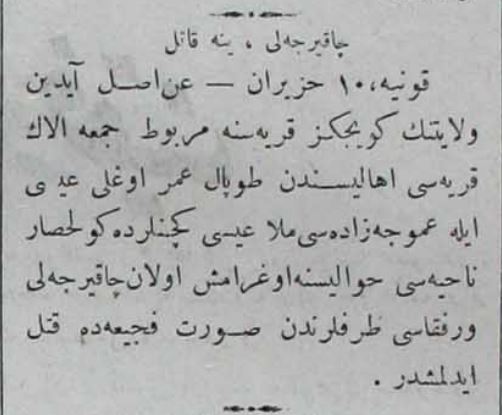 چاقیرجه‌لی ، ینه قاتل
قونیه، ۱۰ حزیران — عن‌اصل آیدین
ولایتنك كویجكز قریه‌سنه مربوط جمعه الاك
قریه‌سی اهالیسندن طوپال عمر اوغلی عیسی
ایله عموجه‌زاده‌سی ملا عیسی كچنلرده كولحصار
ناحیه‌سی حوالیسنه اوغرامش اولان چاقیرجه‌لی
ورفقاسی طرفلرندن صورت فجیعه‌ده قتل
ایدلمشدر .